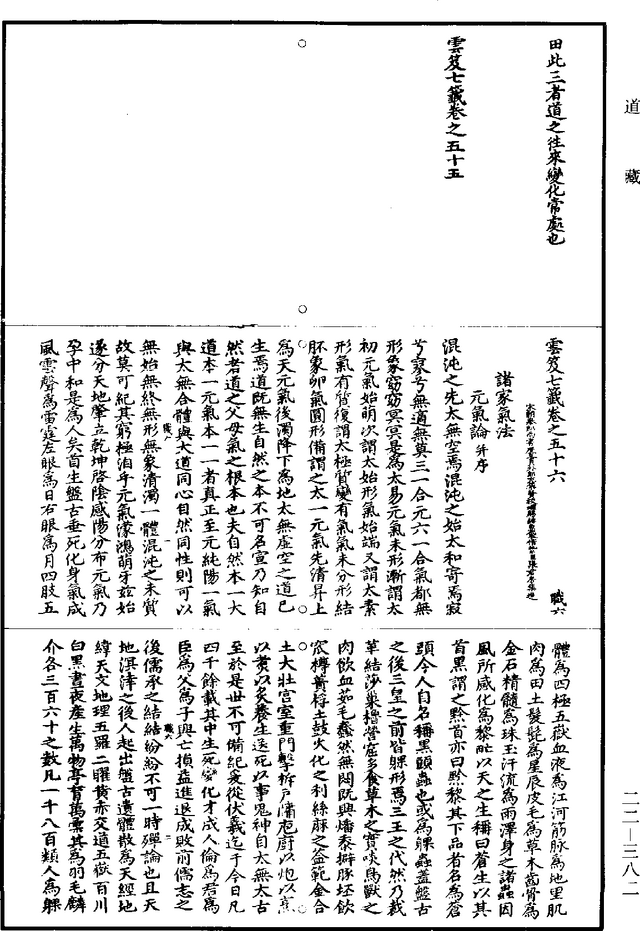 道藏
田此三者道之往來變化常處也
雲笈七籤卷之五十五
雲笈七籤卷之五十六
職六
諸家氣法
元氣論并序
混沌之先太無空焉混沌之始太和寄焉寂
兮寥兮無適無莫三一合元六一合氣都無
形象窈窈冥冥是為太易元氣未形漸謂太
初元氣始萌次謂太始形氣始端又謂太素
形氣有質復謂太極質變有氣氣未分形結
胚象卵氣圓形備謂之太一元氣先清昇上
為天元氣後濁降下為地太無虛空之道已
生焉道既無生自然之本不可名宣乃知自
然者道之父母氣之根本也夫自然本一大
道本一元氣本一一者真正至元純陽一氣
與太無合體與大道同心自然同性則可以
無始無終無形無象清濁一體混沌之未質
故莫可紀其窮極洎乎元氣濛鴻萌牙茲始
遂分天地肇立乾坤啓陰感陽分布元氣乃
孕中和是為人矣首生盤古垂死化身氣成
風雲聲為雷霆左眼為日右眼為月四肢五
體為四極五嶽血液為江河筋脉為地里肌
肉為田土髮髭為星辰皮毛為草木齒骨為
金石精髓為珠玉汗流為雨澤身之諸蟲因
風所感化為黎甿以天之生稱曰蒼生以其
首黑謂之黔首亦曰黔黎其下品者名為蒼
頭今人自名稱黑頭蟲也或為躶蟲盖盤古
之後三皇之前皆躶形焉三王之代然乃裁
革結莎巢櫓營窟多食草木之實啖鳥獸之
肉飲血茹毛蠢然無悶既興燔黍擗豚坯飲
窊樽蕢桴土鼓火化之利絲麻之益範金合
土大壯宮室重門擊柝戶牖庖厨以炮以烹
以煑以炙養生送死以事鬼神自太無太古
至於是世不可備紀爰從伏羲迄于今日凡
四千餘載其中生死變化才成人倫為君為
臣為父為子興亡損益進退成敗前儒志之
後儒承之結結紛紛不可一時殫論也且天
地溟涬之後人起出盤古遺體散為天經地
緯天文地理五羅二曜黃赤交道五嶽百川
白黑晝夜産生萬物亭育萬彙其為羽毛鱗
介各三百六十之數凡一千八百類人為躶
職六
職六
二二—三八二